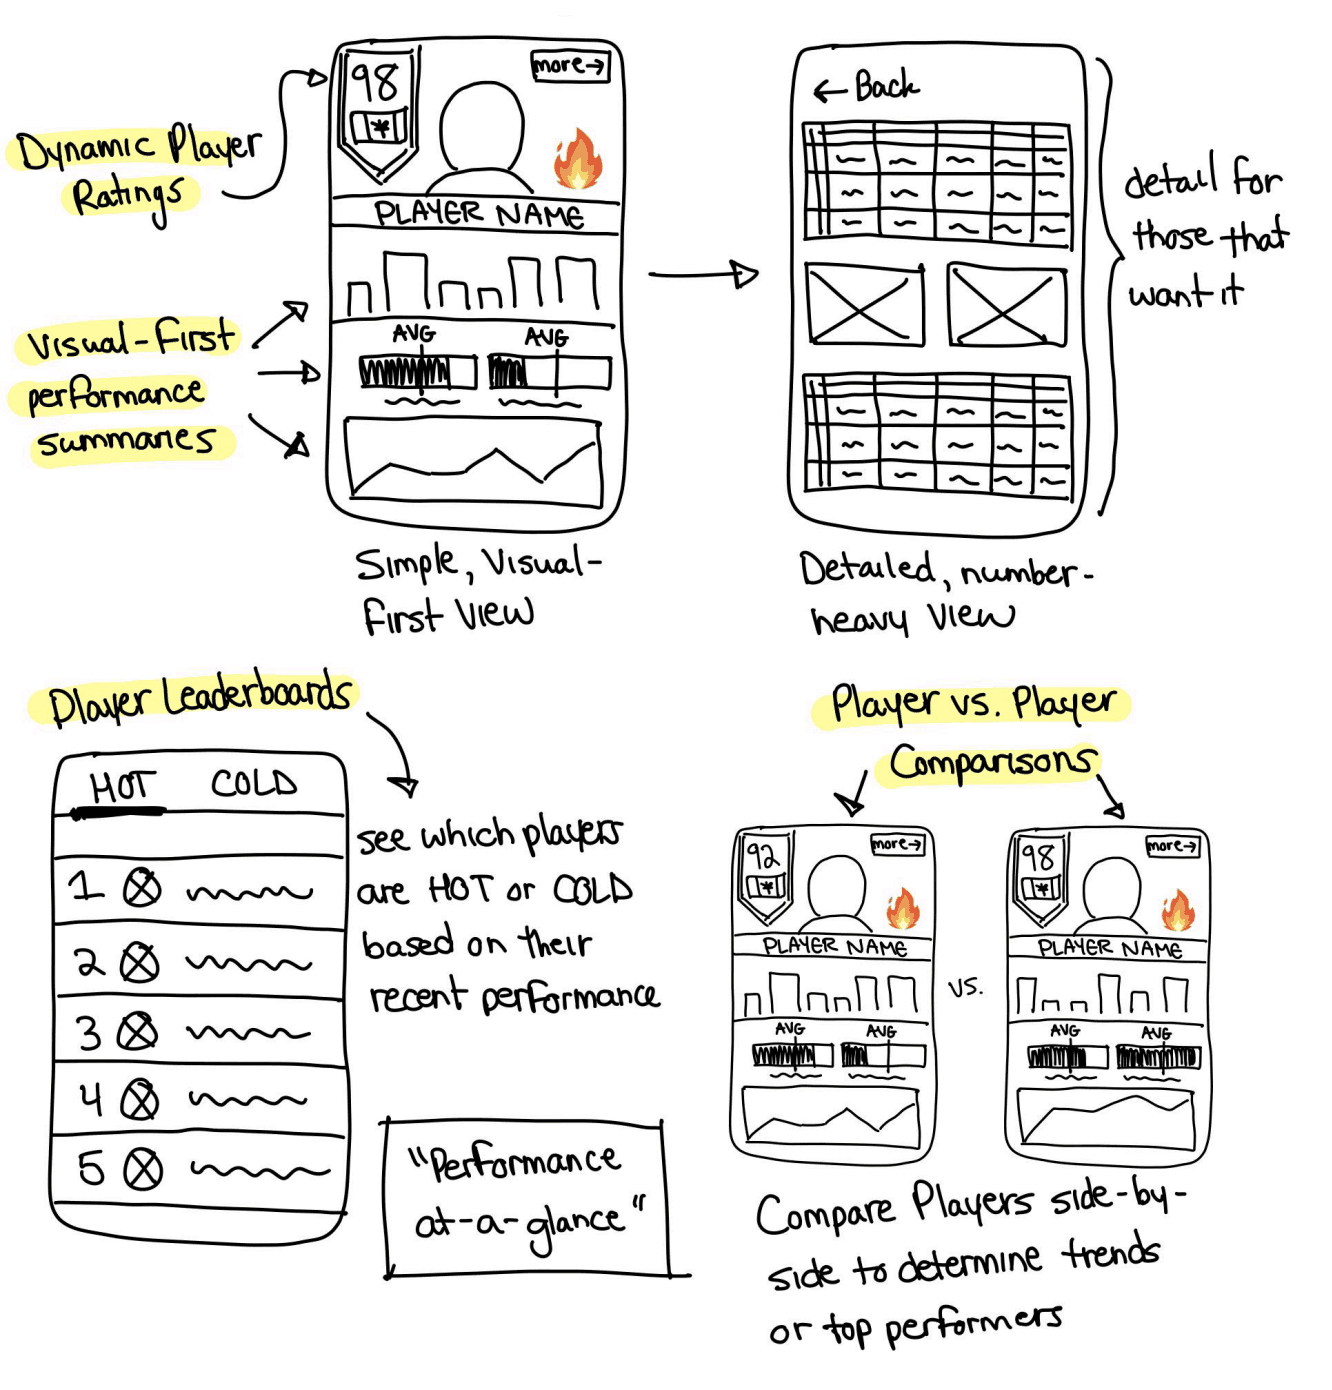 98
more→
← Back
Dynamic Player
Ratings
PLAYER NAME
detail for
those that
want it
Visual-First
performance
summaries
AVG AVG
Simple, Visual-
First View
Detailed, number-
heavy view
Player Leaderboards
HOT COLD
1
2
3
4
5
see which players
are HOT or COLD
based on their
recent performance
"Performance
at-a-glance"
Player vs. Player
Comparisons
92
more→
PLAYER NAME
AVG AVG
vs.
98
more→
PLAYER NAME
AVG AVG
Compare Players side-by-
side to determine trends
or top performers